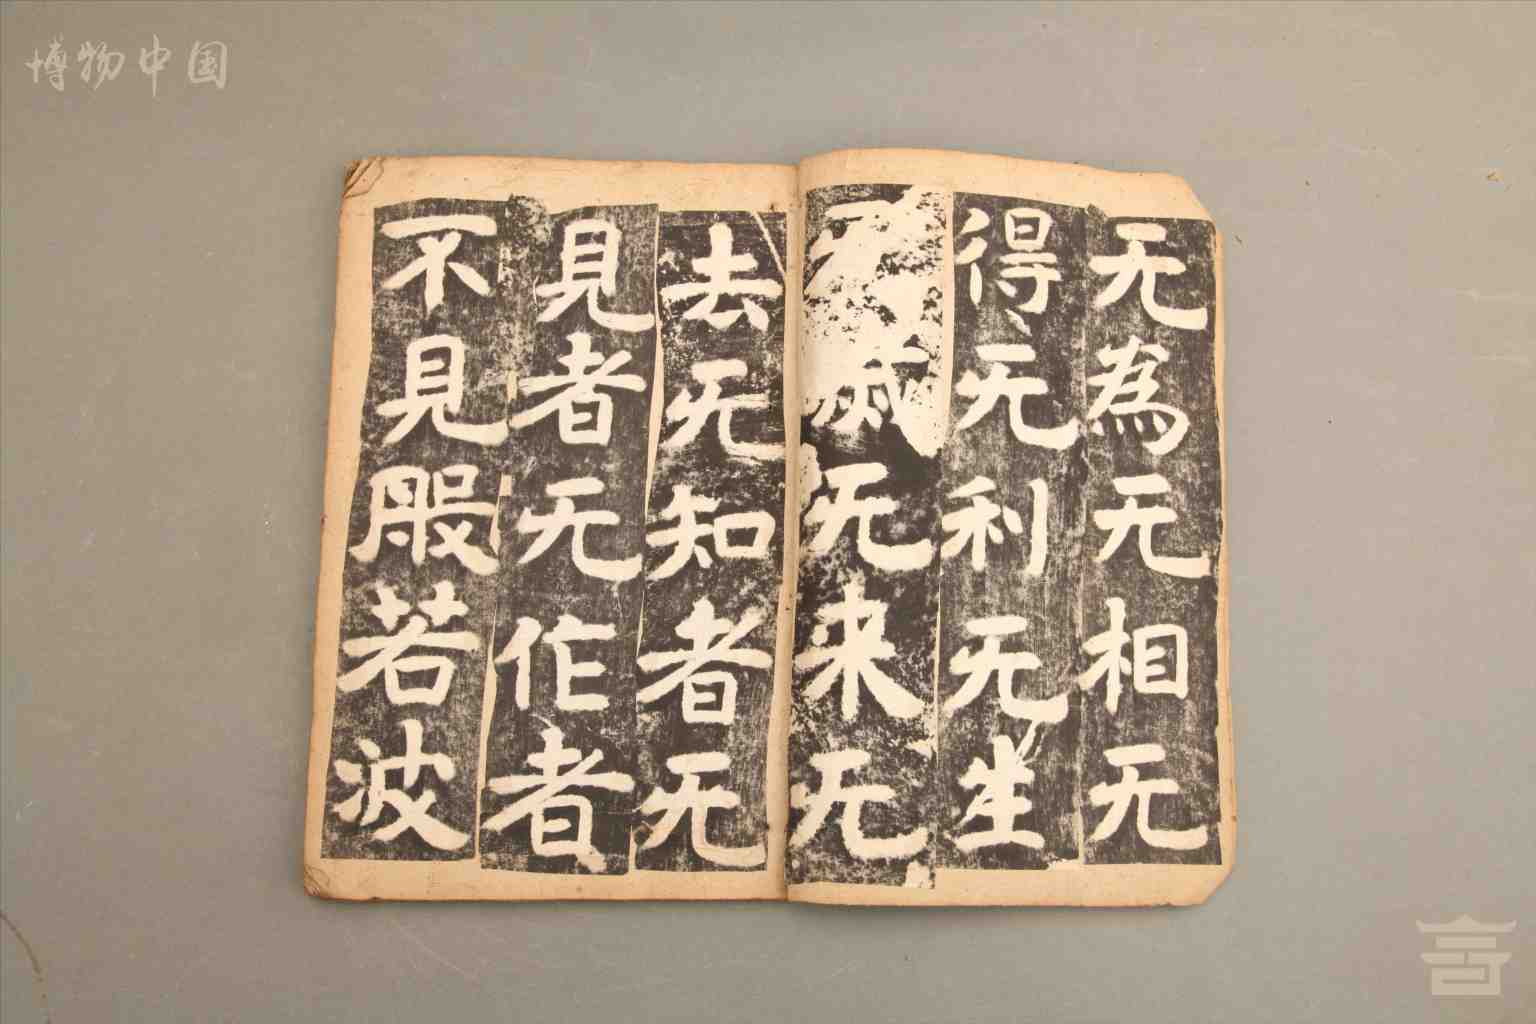 博物中国
无為无相无
得无利无生
无滅无来无
去无知者无
見者无作者
不見般若波